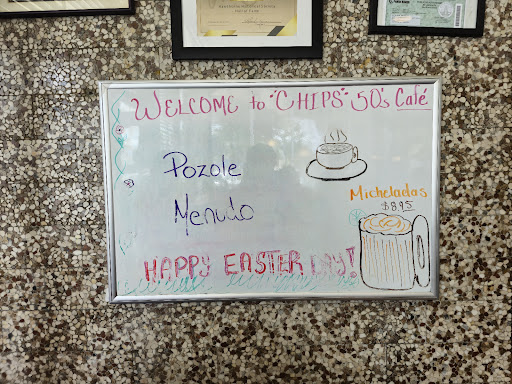 WELCOME to "CHIPS" 50's Café
Pozole
Menudo
Micheladas
$8.95
HAPPY EASTER DAY!